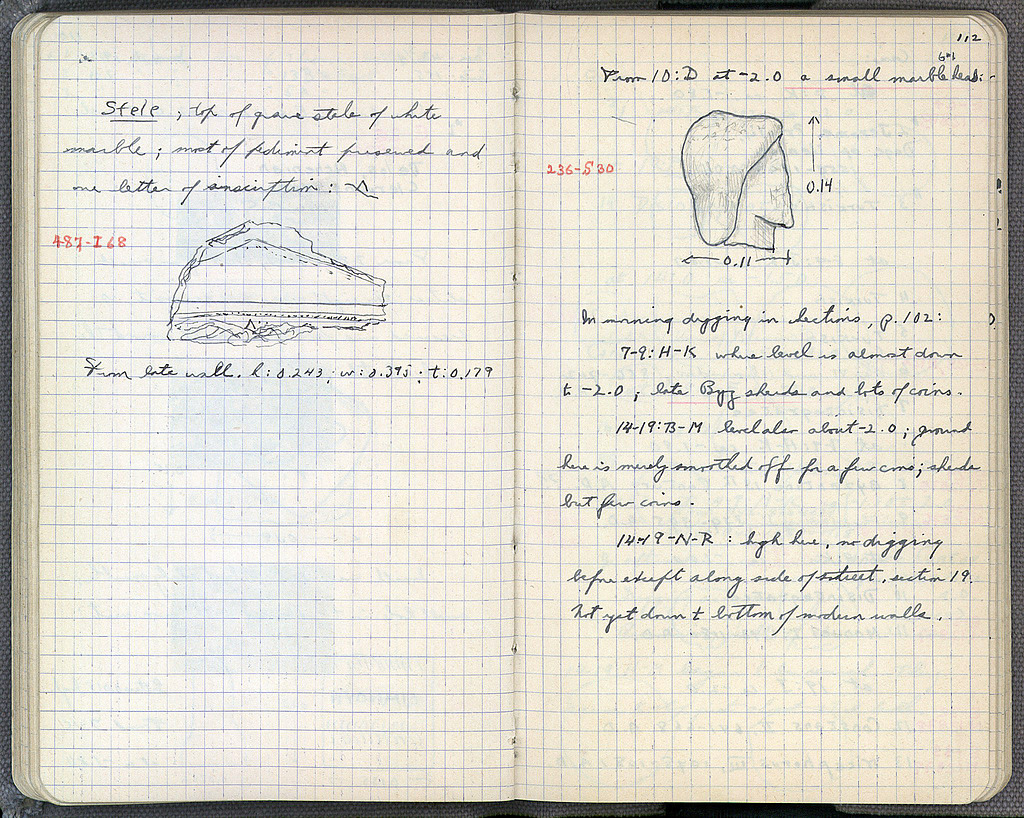 Stele; top of grave stele of white
marble; most of pediment preserved and
one letter of inscription: Λ
487-I 68
Λ
From late wall. h: 0.243; w: 0.395; t: 0.179
112
From 10:D at -2.0 a small marble head:-
236-S 30
0.14
0.11
In morning digging in sections, p. 102:
7-9: H-K where level is almost down
to -2.0; late Byz sherds and lots of coins.
14-19: B-M level also about -2.0; ground
here is merely smoothed off for a few cms; sherds
but few coins.
14-19-N-R: high here, no digging
before except along side of street, section 19.
Not yet down to bottom of modern walls.